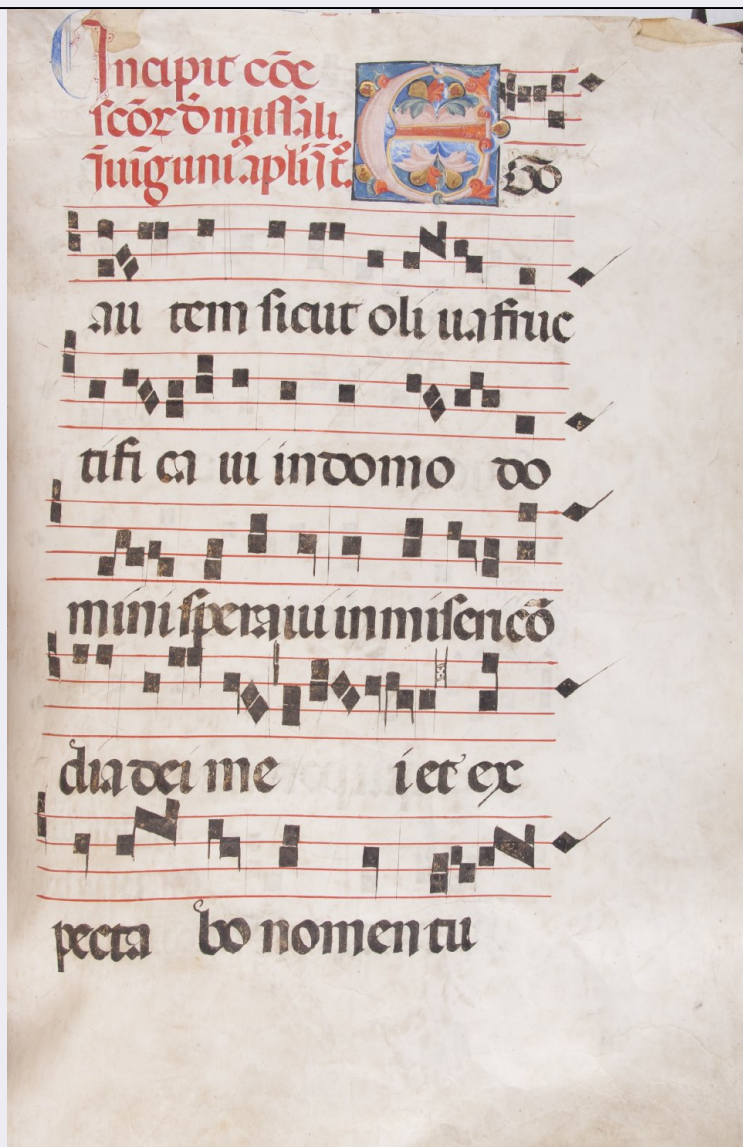 Incipit cōe
scōꝝ d̄ missali.
ī uig̃ uni᷒ apłi ĩt̃.
E GO
au tem sicut oli ua fruc
tifi ca ui in domo do
mini speraui in miserico
dia dei me i et ex
pecta bo nomen tu